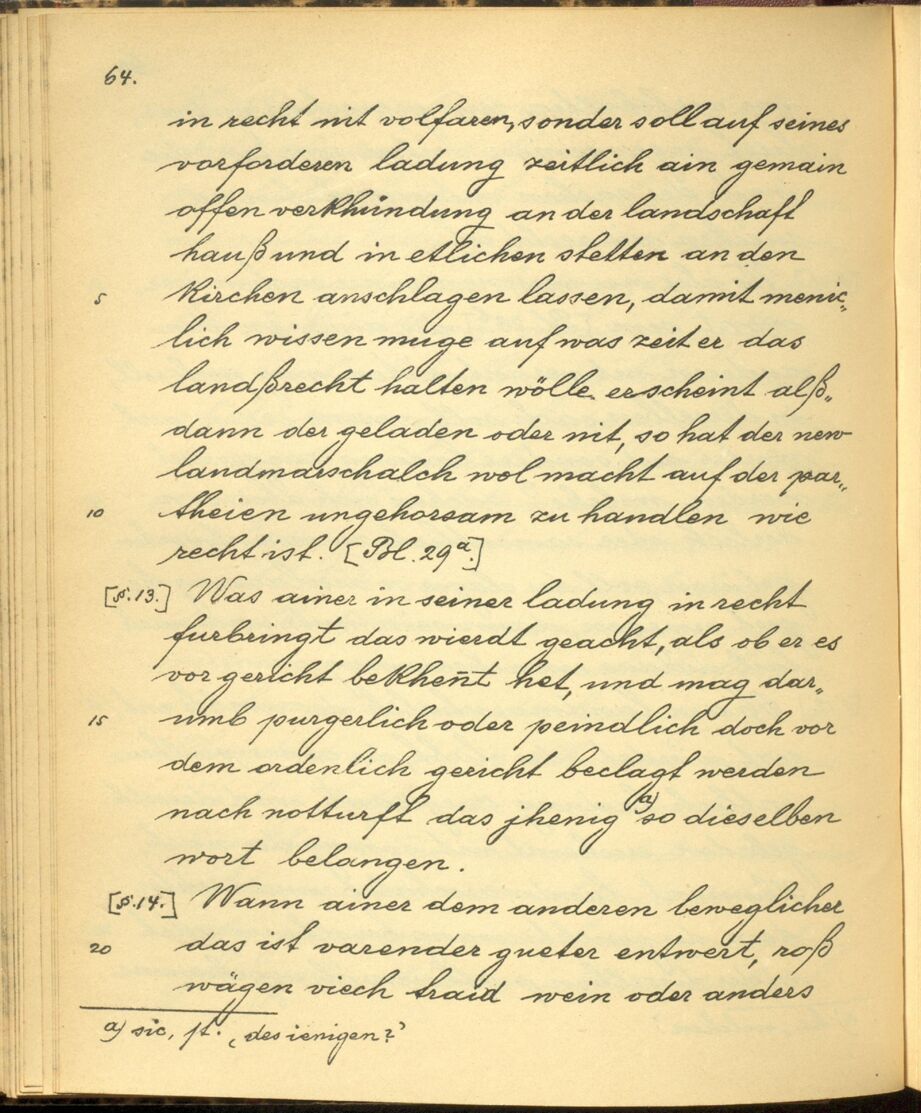 64.
in recht nit volfaren, sonder soll auf seines
vorforderen ladung zeitlich ain gemain
offen verkhündung an der landschaft
hauß und in etlichen stetten an den
5 kirchen anschlagen lassen, damit menic„
lich wissen muge auf was zeit er das
landßrecht halten wölle. erscheint alß„
dann der geladen oder nit, so hat der new
landmarschalch wol macht auf der par„
10 theien ungehorsam zu handlen wie
recht ist. [Bl. 29a.]
[§.13.] Was ainer in seiner ladung in recht
furbringt das wierdt geacht, als ob er es
vor gericht bekhen̄t het, und mag dar„
15 umb purgerlich oder peindlich doch vor
dem ordenlich gericht beclagt werden
nach notturft das jhenig a) so dieselben
wort belangen.
[§.14.] Wann ainer dem anderen beweglicher
20 das ist varender gueter entwert, roß
wägen viech traid wein oder anders
a) sic, st. ‚desienigen?‘